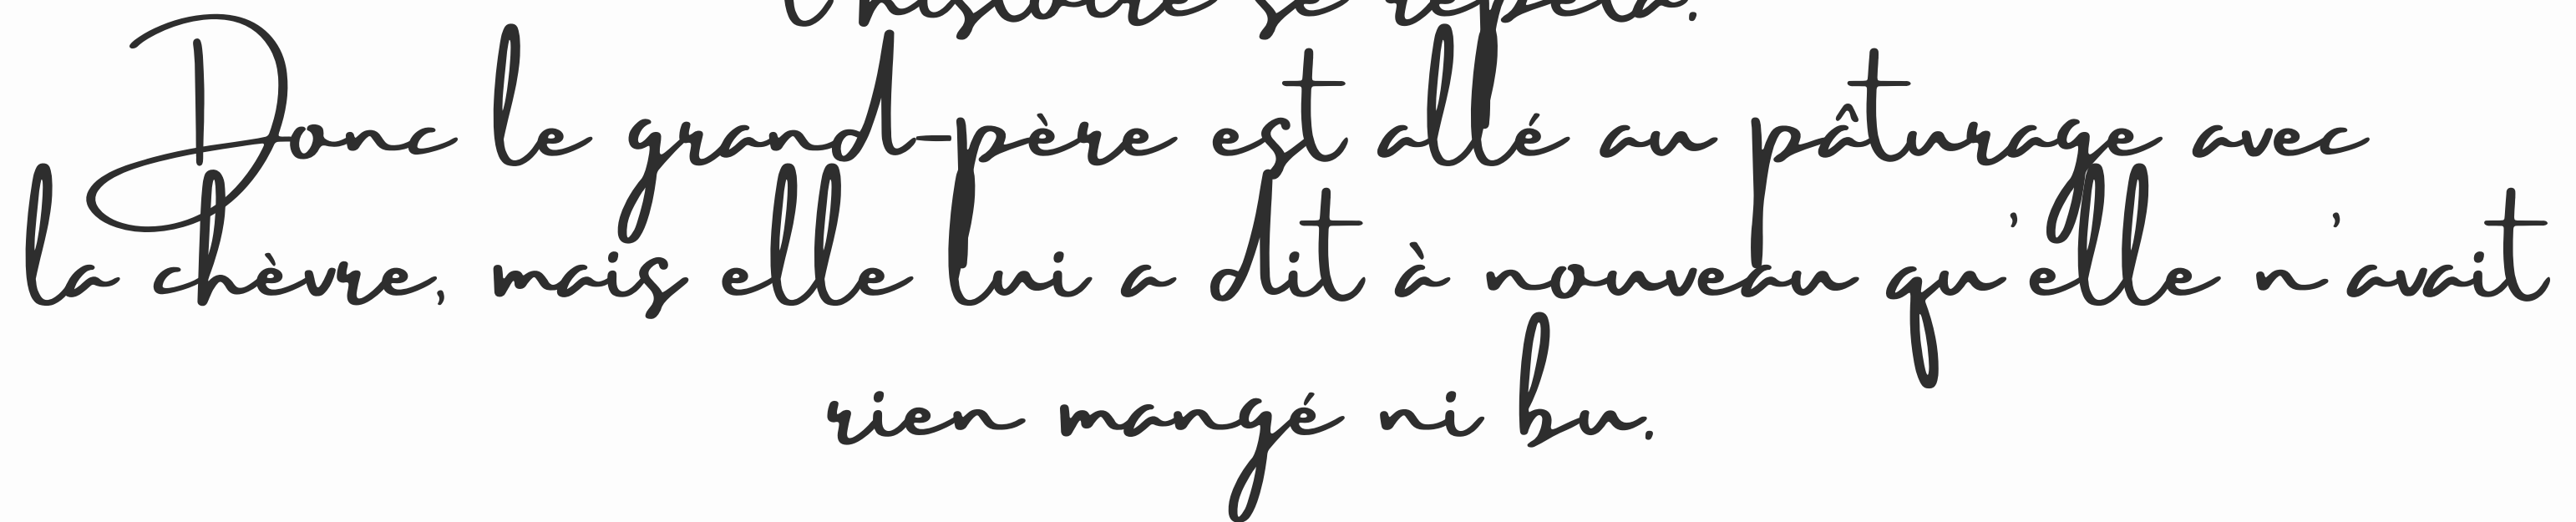 l'histoire se répéta.
Donc le grand-père est allé au pâturage avec
la chèvre, mais elle lui a dit à nouveau qu'elle n'avait
rien mangé ni bu.